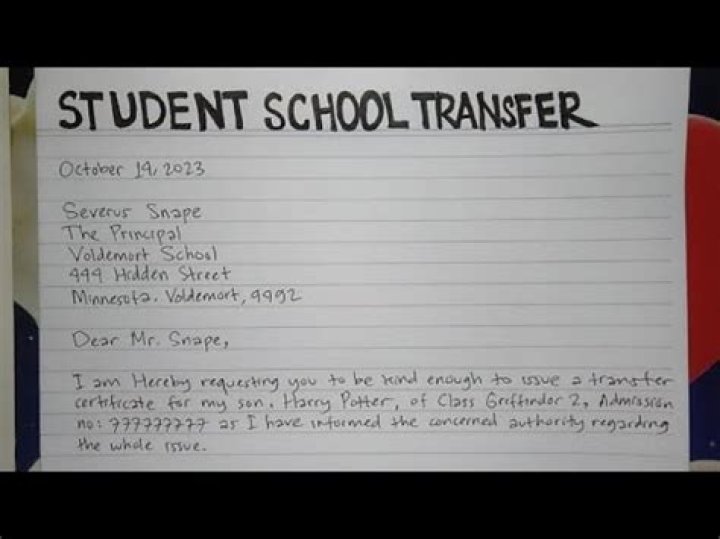 STUDENT SCHOOL TRANSFER
October 19, 2023
Severus Snape
The Principal
Voldemort School
999 Hidden Street
Minnesota. Voldemort, 9992
Dear Mr. Snape,
I am Hereby requesting you to be kind enough to issue a transfer
certificate for my son. Harry Potter, of Class Griffindor 2, Admission
no: 777777777 as I have informed the concerned authority regarding
the whole issue.